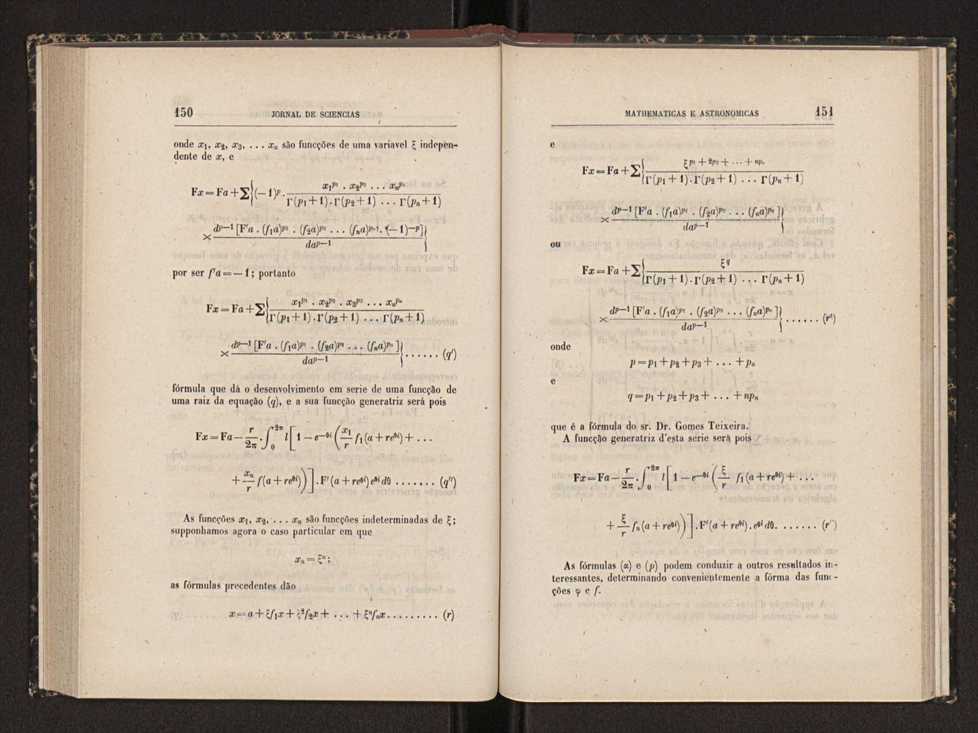 150 JORNAL DE SCIENCIAS
onde x₁, x₂, x₃, . . . xₙ são funcções de uma variavel ξ indepen-
dente de x, e
Fx = Fa + Σ{(−1)ᵖ . x₁^p₁ . x₂^p₂ . . . xₙ^pₙ / Γ(p₁+1).Γ(p₂+1) . . . Γ(pₙ+1)
× d^{p−1} [F'a . (f₁a)^p₁ . (f₂a)^p₂ . . . (fₙa)^pₙ . (−1)^{−p}] / da^{p−1} }
por ser f'a = −1; portanto
Fx = Fa + Σ{ x₁^p₁ . x₂^p₂ . x₃^p₃ . . . xₙ^pₙ / Γ(p₁+1).Γ(p₂+1) . . . Γ(pₙ+1)
× d^{p−1} [F'a . (f₁a)^p₁ . (f₂a)^p₂ . . . (fₙa)^pₙ] / da^{p−1} } . . . . . . (q')
fórmula que dá o desenvolvimento em serie de uma funcção de
uma raiz da equação (q), e a sua funcção generatriz será pois
Fx = Fa − r/2π . ∫₀^{2π} l [ 1 − e^{−θi} ( x₁/r f₁(a + re^{θi}) + . . .
+ xₙ/r f(a + re^{θi}) ) ] . F'(a + re^{θi}) e^{θi} dθ . . . . . . . (q'')
As funcções x₁, x₂, . . . xₙ são funcções indeterminadas de ξ;
supponhamos agora o caso particular em que
xₙ = ξⁿ;
as fórmulas precedentes dão
x = a + ξf₁x + ξ²f₂x + . . . + ξⁿfₙx . . . . . . . . . (r)
MATHEMATICAS E ASTRONOMICAS 151
e
Fx = Fa + Σ{ ξ^{p₁ + 2p₂ + . . . + npₙ} / Γ(p₁+1).Γ(p₂+1) . . . Γ(pₙ+1)
× d^{p−1} [F'a . (f₁a)^p₁ . (f₂a)^p₂ . . . (fₙa)^pₙ] / da^{p−1} }
ou
Fx = Fa + Σ{ ξ^q / Γ(p₁+1).Γ(p₂+1) . . . Γ(pₙ+1)
× d^{p−1} [F'a . (f₁a)^p₁ . (f₂a)^p₂ . . . (fₙa)^pₙ] / da^{p−1} } . . . . . . (r')
onde
p = p₁ + p₂ + p₃ + . . . + pₙ
e
q = p₁ + p₂ + p₃ + . . . + npₙ
que é a fórmula do sr. Dr. Gomes Teixeira.
A funcção generatriz d'esta serie será pois
Fx = Fa − r/2π . ∫₀^{2π} l [ 1 − e^{−θi} ( ξ/r f₁(a + re^{θi}) + . . .
+ ξ/r fₙ(a + re^{θi}) ) ] . F'(a + re^{θi}) . e^{θi} dθ . . . . . . . (r'')
As fórmulas (α) e (p) podem conduzir a outros resultados in-
teressantes, determinando convenientemente a fórma das func-
ções φ e f.